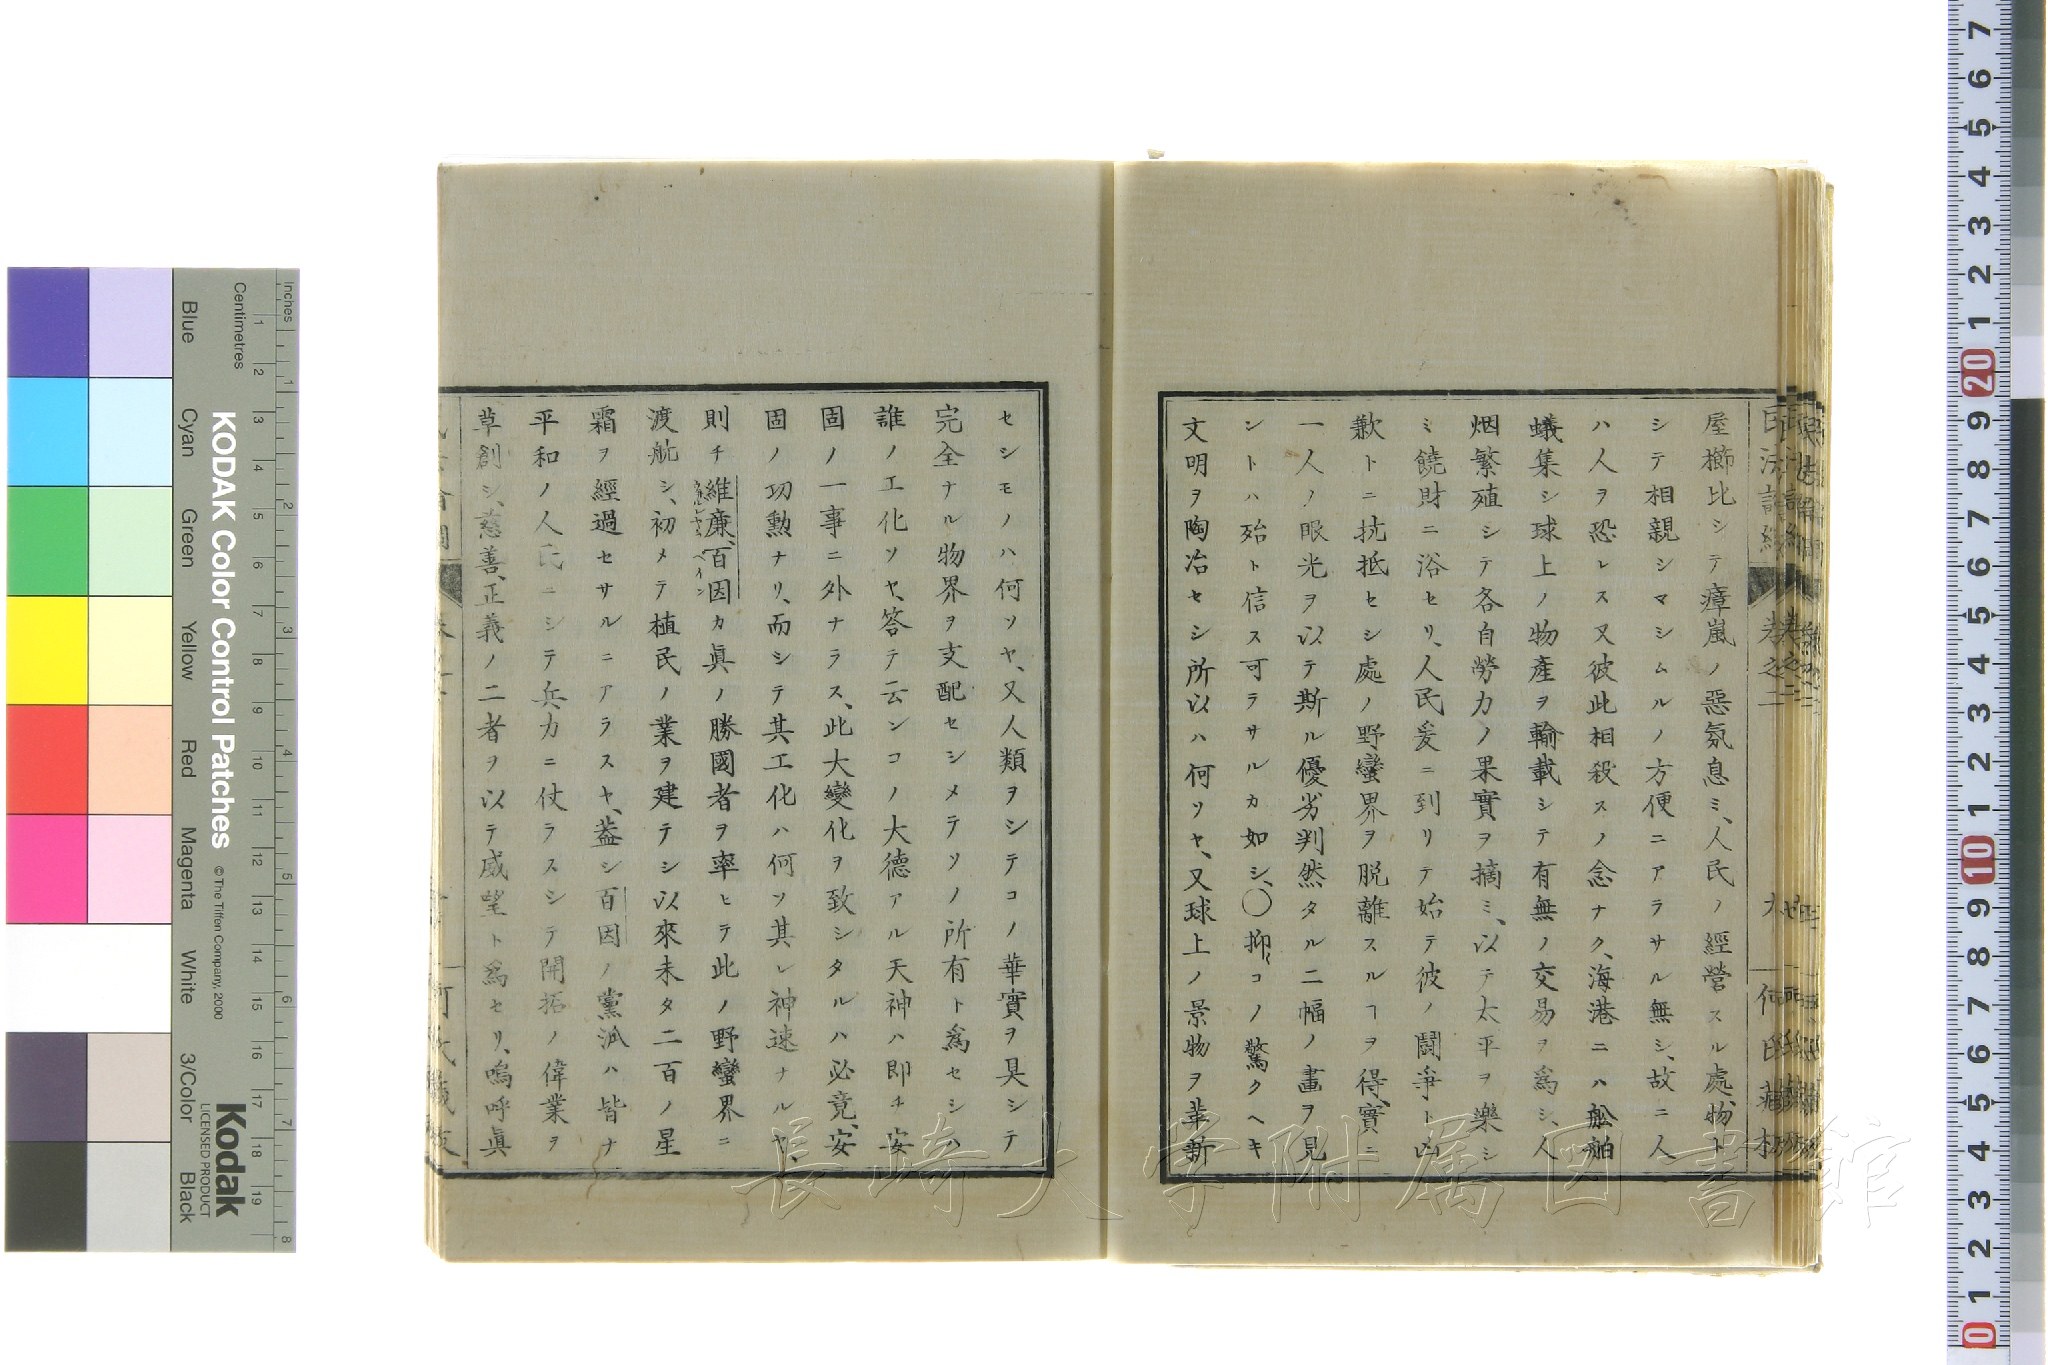 屋櫛比シテ瘴嵐ノ惡氛息ミ、人民ノ經營スル處物ト
シテ相親シマシムルノ方便ニアラサル無シ、故ニ人
ハ人ヲ恐レス又彼此相殺スノ念ナク、海港ニハ舩舶
蟻集シ球上ノ物產ヲ輸載シテ有無ノ交易ヲ爲シ、人
烟繁殖シテ各自勞力ノ果實ヲ摘ミ、以テ太平ヲ樂シ
ミ饒財ニ浴セリ、人民爰ニ到リテ始テ彼ノ鬪爭ト凶
歉トニ抗抵セシ處ノ野蠻界ヲ脱離スルヿヲ得、實ニ
一人ノ眼光ヲ以テ斯ル優劣判然タル二幅ノ畫ヲ見
ントハ殆ト信ス可ラサルカ如シ、〇抑〻コノ驚クヘキ
文明ヲ陶冶セシ所以ハ何ソヤ、又球上ノ景物ヲ革新
セシモノハ何ソヤ、又人類ヲシテコノ華實ヲ具シテ
完全ナル物界ヲ支配セシメテソノ所有ト爲セシハ
誰ノ工化ソヤ、答テ云ンコノ大德アル天神ハ即チ安
固ノ一事ニ外ナラス、此大變化ヲ致シタルハ必竟、安
固ノ功勲ナリ、而シテ其工化ハ何ソ其レ神速ナルヤ、
則チ維廉、百因カ眞ノ勝國者ヲ率ヒラ此ノ野蠻界ニ
渡航シ、初メテ植民ノ業ヲ建テシ以來未タ二百ノ星
霜ヲ經過セサルニアラスヤ、葢シ百因ノ黨派ハ皆ナ
平和ノ人民ニシテ兵力ニ仗ラスシテ開拓ノ偉業ヲ
草創シ、慈善、正義ノ二者ヲ以テ威望ト爲セリ、嗚呼眞
KODAK Color Control Patches
© The Tiffen Company, 2000
Kodak
LICENSED PRODUCT
Inches
Centimetres
Blue
Cyan
Green
Yellow
Red
Magenta
White
3/Color
Black
長崎大学附属図書館